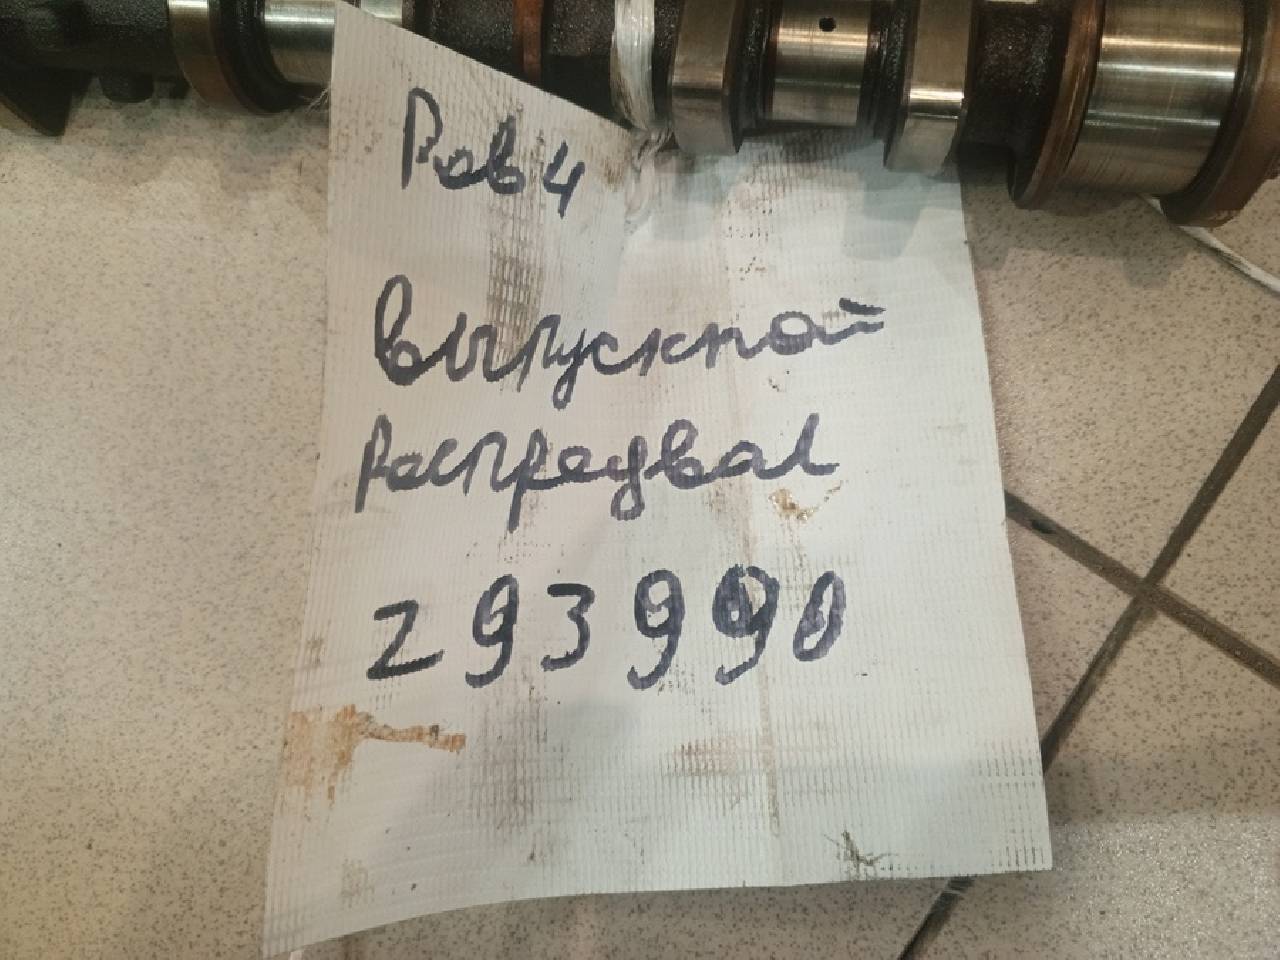 Рав 4
выпускной
Распредвал
293990